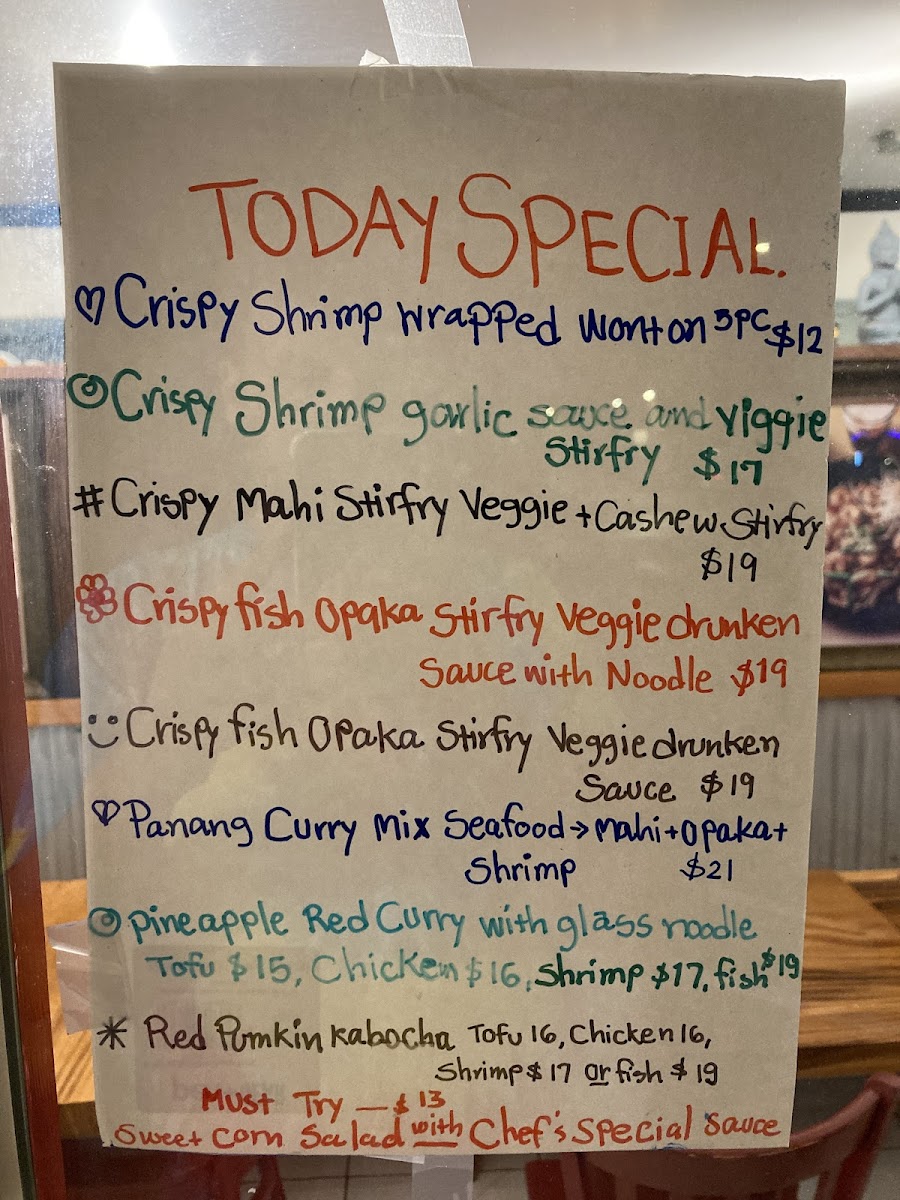 TODAY SPECIAL.
Crispy Shrimp wrapped wonton 5PC $12
Crispy Shrimp garlic sauce and viggie
Stirfry $17
#Crispy Mahi Stirfry Veggie + Cashew Stirfry
$19
Crispy fish Opaka Stirfry Veggie drunken
Sauce with Noodle $19
Crispy fish Opaka Stirfry Veggie drunken
Sauce $19
Panang Curry Mix Seafood → Mahi + Opaka +
Shrimp $21
pineapple Red Curry with glass noodle
Tofu $15, Chicken $16, Shrimp $17, fish $19
* Red Pumkin Kabocha Tofu 16, Chicken 16,
Shrimp $ 17 or fish $ 19
Must Try — $ 13
Sweet Corn Salad with Chef's Special Sauce